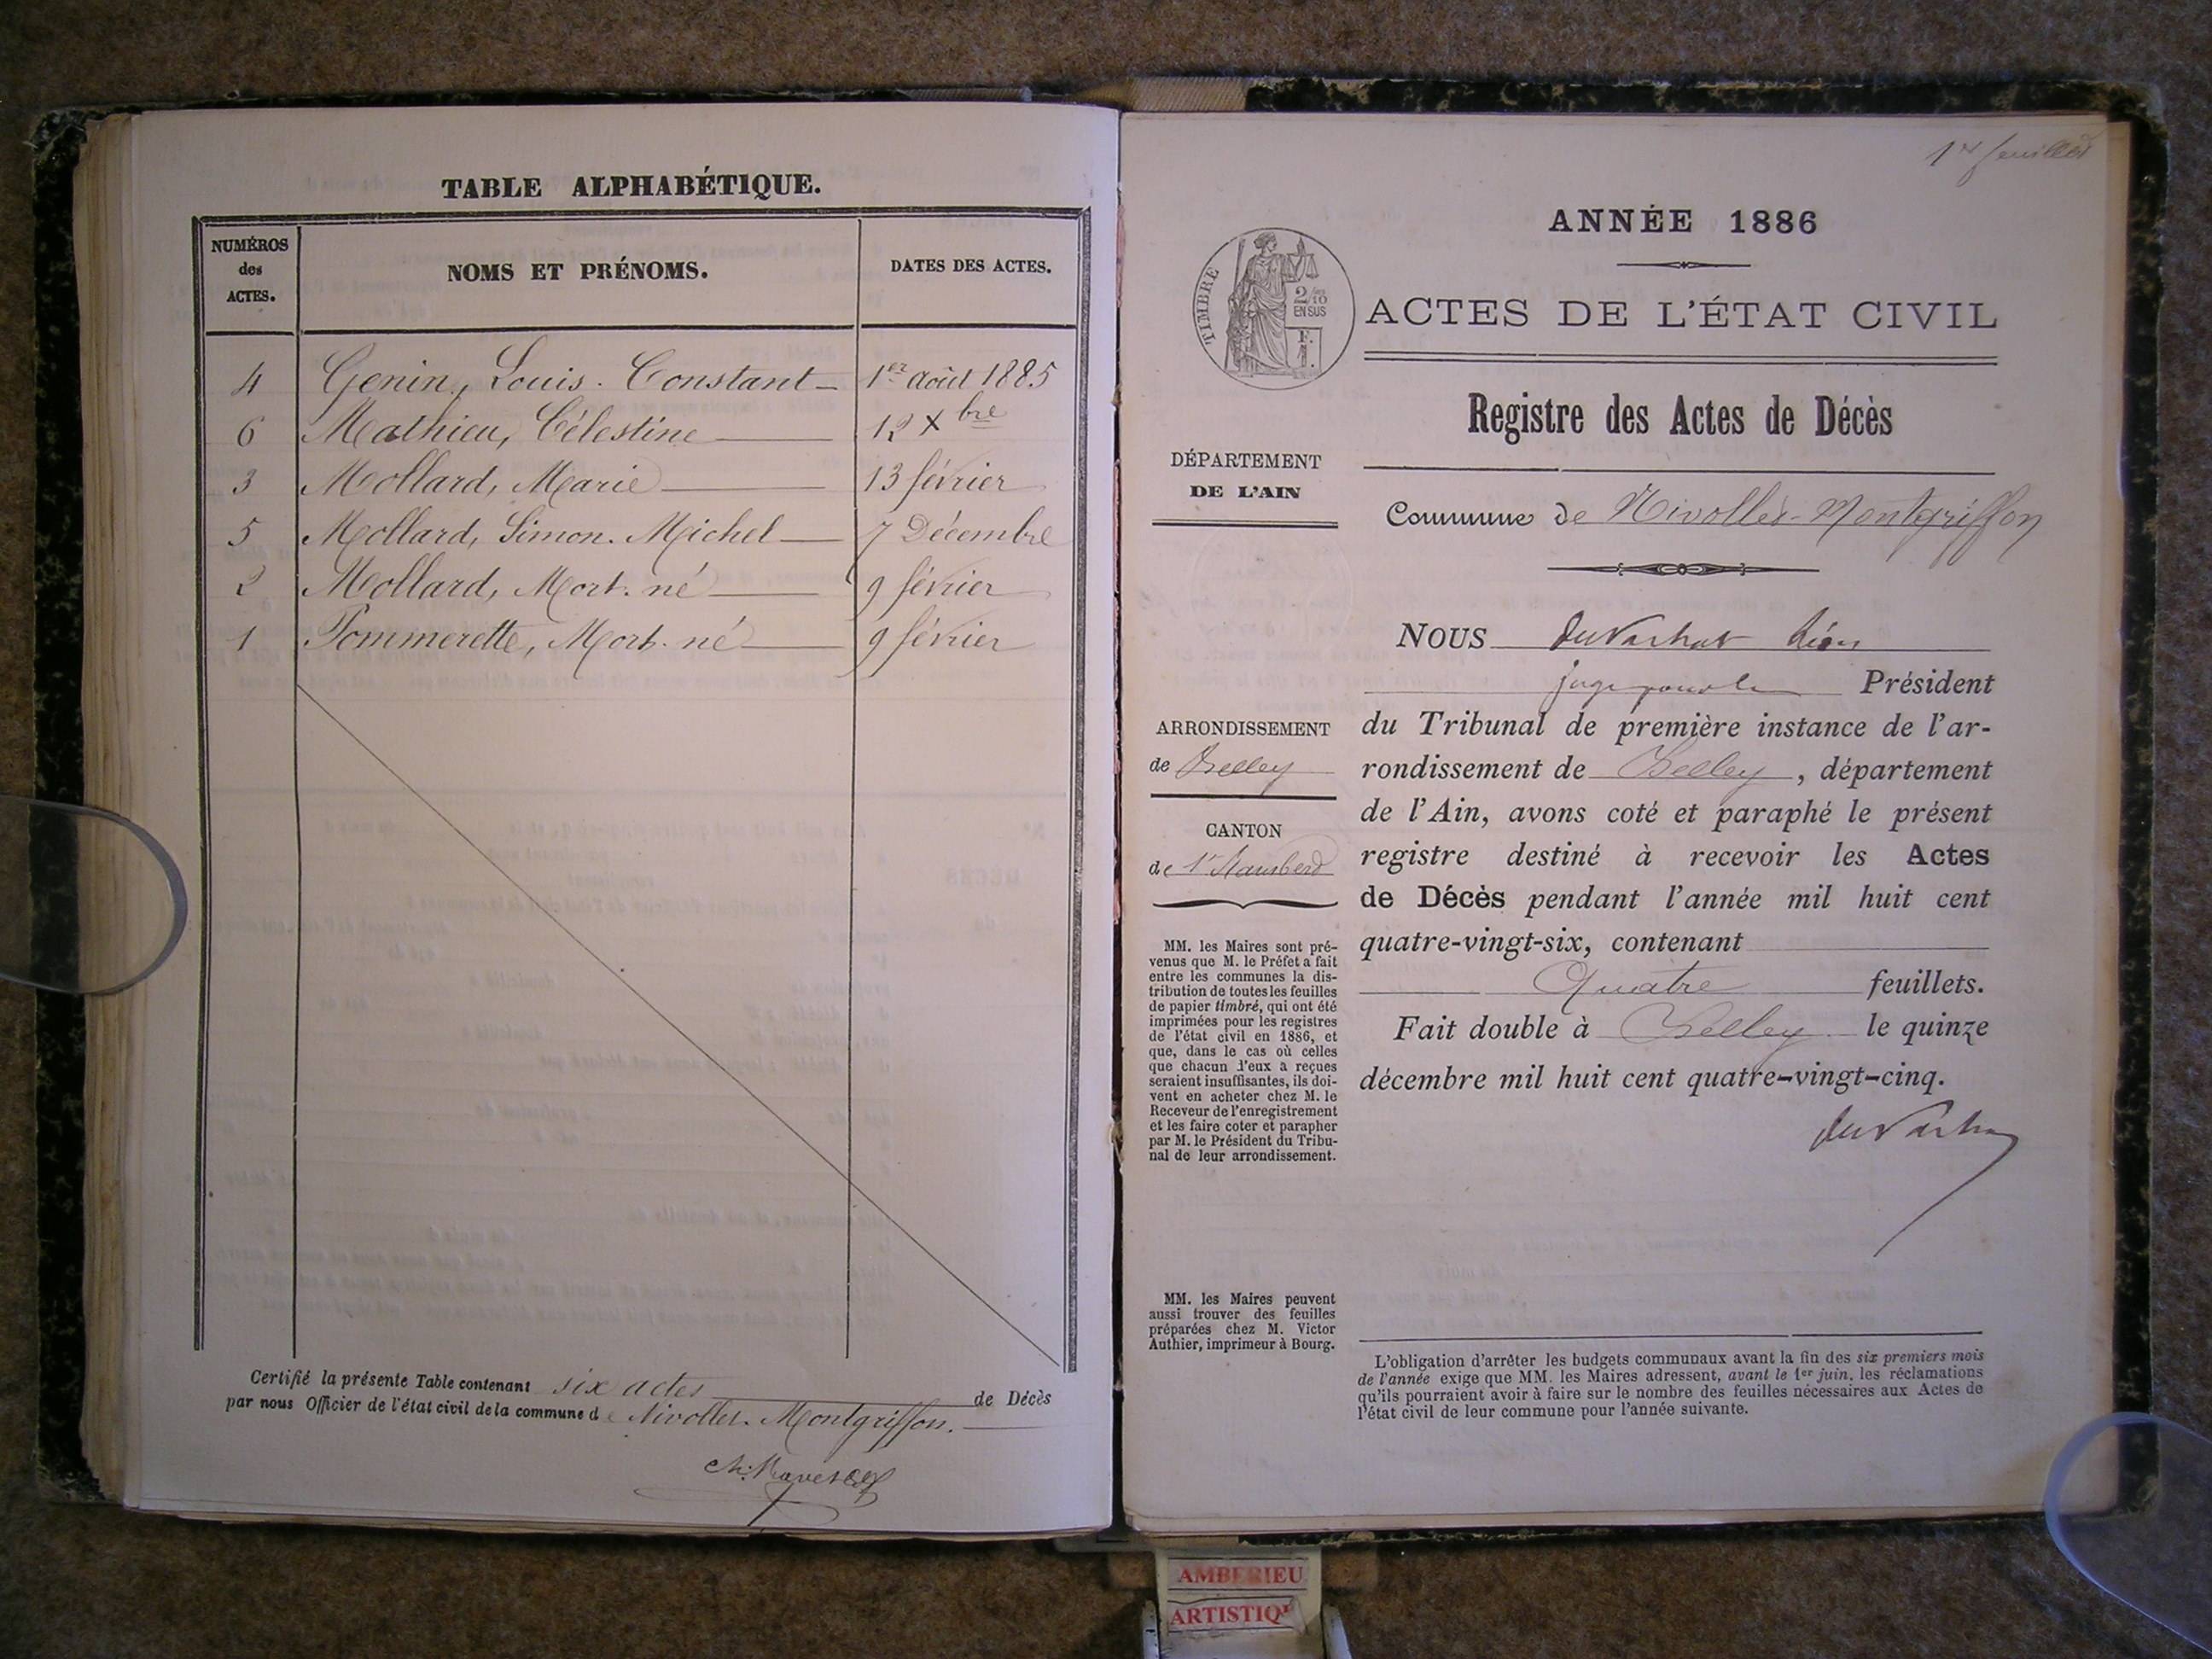 TABLE ALPHABÉTIQUE.
NUMÉROS
des
ACTES.
NOMS ET PRÉNOMS.
DATES DES ACTES.
4 Genin, Louis. Constant 1er août 1885
6 Mathieu, Célestine 12 Xbre
3 Mollard, Marie 13 février
5 Mollard, Simon. Michel 7 Décembre
2 Mollard, Mort. né 9 février
1 Pommerette, Mort. né 9 février
Certifié la présente Table contenant six actes de Décès
par nous Officier de l'état civil de la commune de Nivollet. Montgriffon.
1er feuillet
ANNÉE 1886
TIMBRE
2/10
EN SUS
F.
1.
ACTES DE L'ÉTAT CIVIL
Registre des Actes de Décès
DÉPARTEMENT
DE L'AIN
Commune de Nivollet-Montgriffon
ARRONDISSEMENT
de Belley
CANTON
de St Rambert
MM. les Maires sont pré-
venus que M. le Préfet a fait
entre les communes la dis-
tribution de toutes les feuilles
de papier timbré, qui ont été
imprimées pour les registres
de l'état civil en 1886, et
que, dans le cas où celles
que chacun d'eux a reçues
seraient insuffisantes, ils doi-
vent en acheter chez M. le
Receveur de l'enregistrement
et les faire coter et parapher
par M. le Président du Tribu-
nal de leur arrondissement.
MM. les Maires peuvent
aussi trouver des feuilles
préparées chez M. Victor
Authier, imprimeur à Bourg.
NOUS
juge pour le Président
du Tribunal de première instance de l'ar-
rondissement de Belley, département
de l'Ain, avons coté et paraphé le présent
registre destiné à recevoir les Actes
de Décès pendant l'année mil huit cent
quatre-vingt-six, contenant
Quatre feuillets.
Fait double à Belley le quinze
décembre mil huit cent quatre-vingt-cinq.
L'obligation d'arrêter les budgets communaux avant la fin des six premiers mois
de l'année exige que MM. les Maires adressent, avant le 1er juin, les réclamations
qu'ils pourraient avoir à faire sur le nombre des feuilles nécessaires aux Actes de
l'état civil de leur commune pour l'année suivante.
AMBERIEU
ARTISTIQ